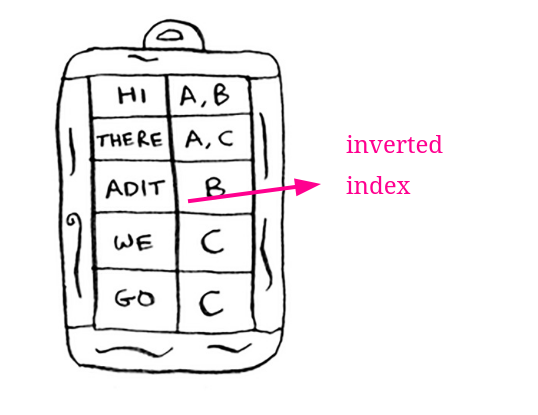 HI A, B
THERE A, C
ADIT B
WE C
GO C
inverted
index